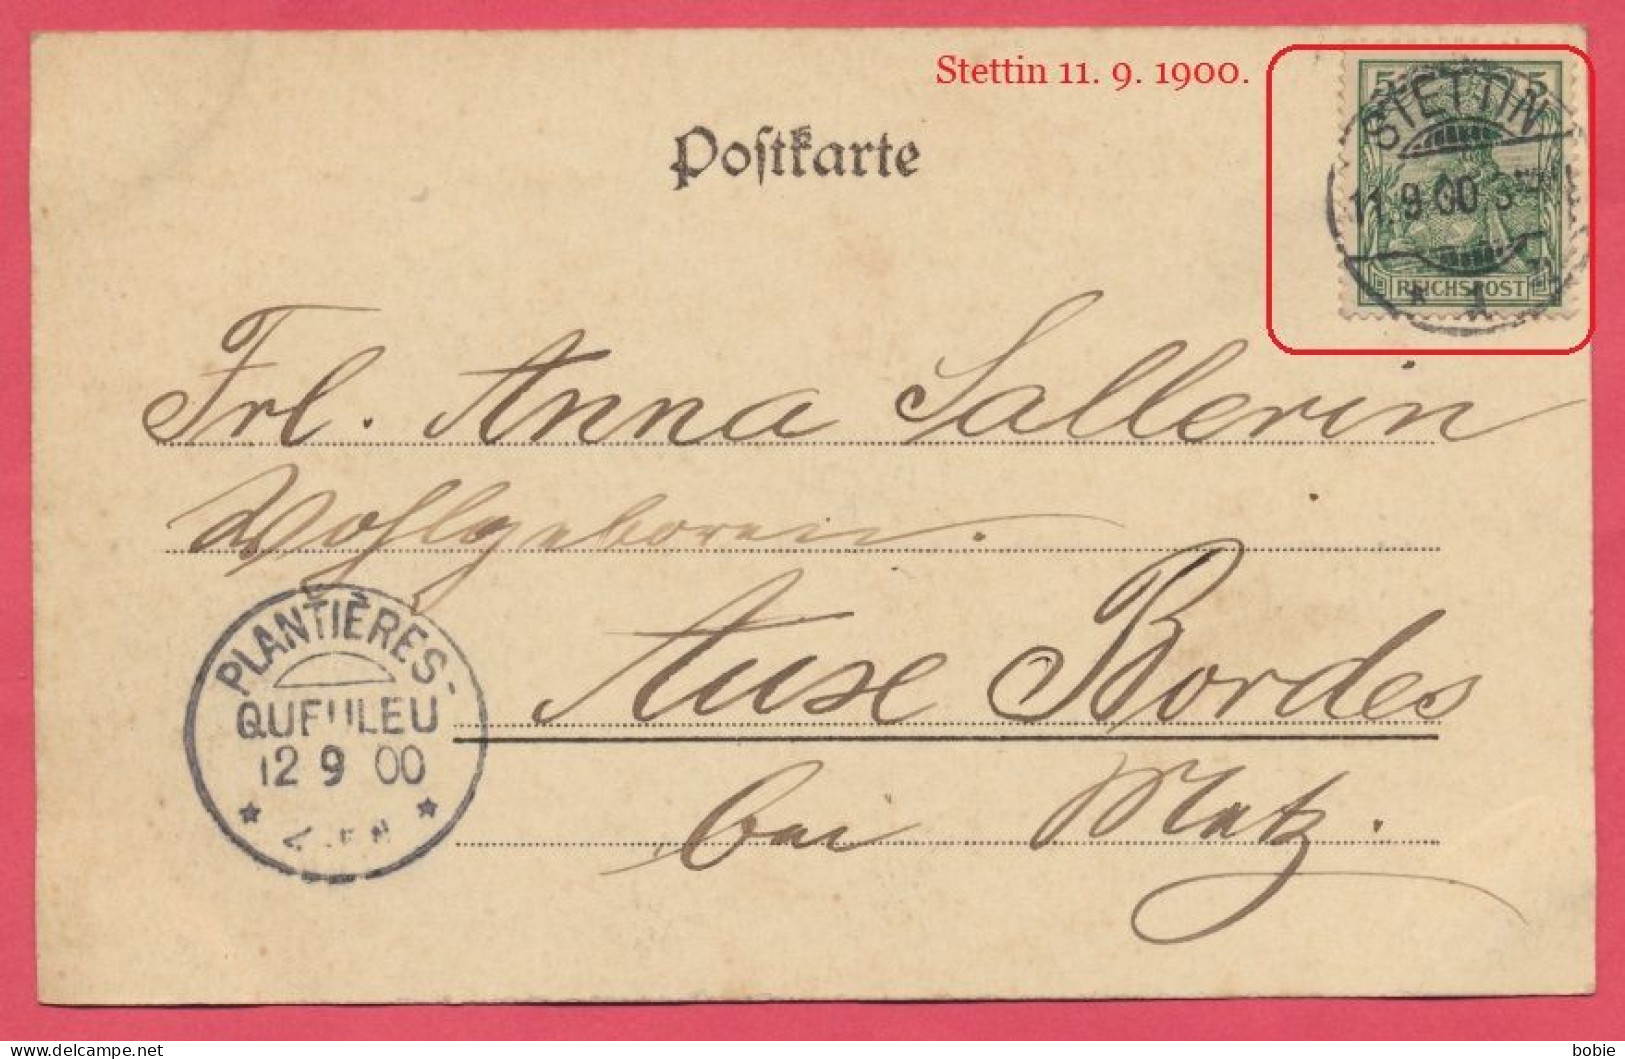 Stettin 11. 9. 1900.
5 5
STETTIN
11.9.00.3-4
REICHSPOST
Postkarte
Frl. Anna Sallerin
Wohlgeboren.
Ause Bordes
bei Metz.
PLANTIÈRES-
QUEULEU
12 9 00
delcampe.net
bobie